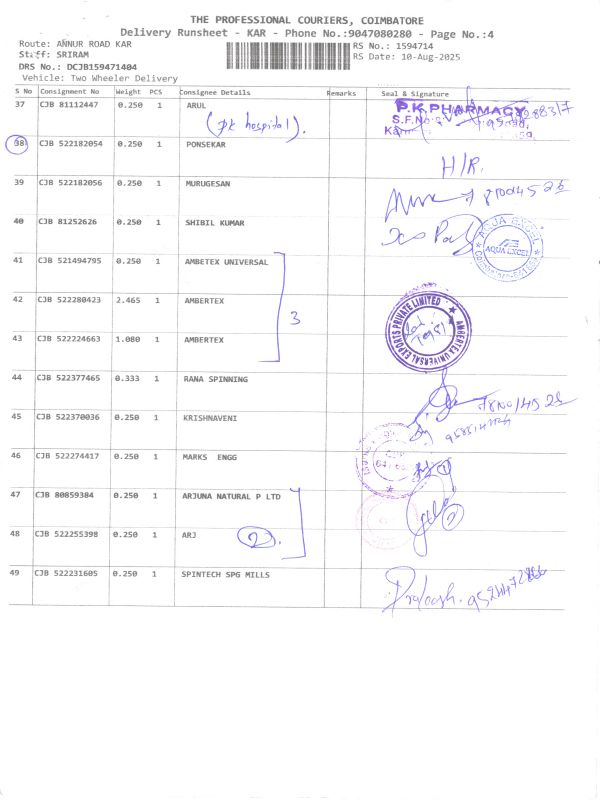 THE PROFESSIONAL COURIERS, COIMBATORE
Delivery Runsheet - KAR - Phone No.:9047080280 - Page No.:4
Route: ANNUR ROAD KAR RS No.: 1594714
Staff: SRIRAM RS Date: 10-Aug-2025
DRS No.: DCJB159471404
Vehicle: Two Wheeler Delivery
S No Consignment No Weight PCS Consignee Details Remarks Seal & Signature
37 CJB 81112447 0.250 1 ARUL P.K.PHARMACY
(pk hospital). S.F.No
38 CJB 522182054 0.250 1 PONSEKAR
H/R.
39 CJB 522182056 0.250 1 MURUGESAN
40 CJB 81252626 0.250 1 SHIBIL KUMAR AQUA EXCEL
AQUA EXCEL
41 CJB 521494795 0.250 1 AMBETEX UNIVERSAL
42 CJB 522280423 2.465 1 AMBERTEX
3
AMBERTEX UNIVERSAL EXPORTS PRIVATE LIMITED
43 CJB 522224663 1.080 1 AMBERTEX
44 CJB 522377465 0.333 1 RANA SPINNING
45 CJB 522370036 0.250 1 KRISHNAVENI
46 CJB 522274417 0.250 1 MARKS ENGG
47 CJB 80859384 0.250 1 ARJUNA NATURAL P LTD
48 CJB 522255398 0.250 1 ARJ 2 2
49 CJB 522231605 0.250 1 SPINTECH SPG MILLS